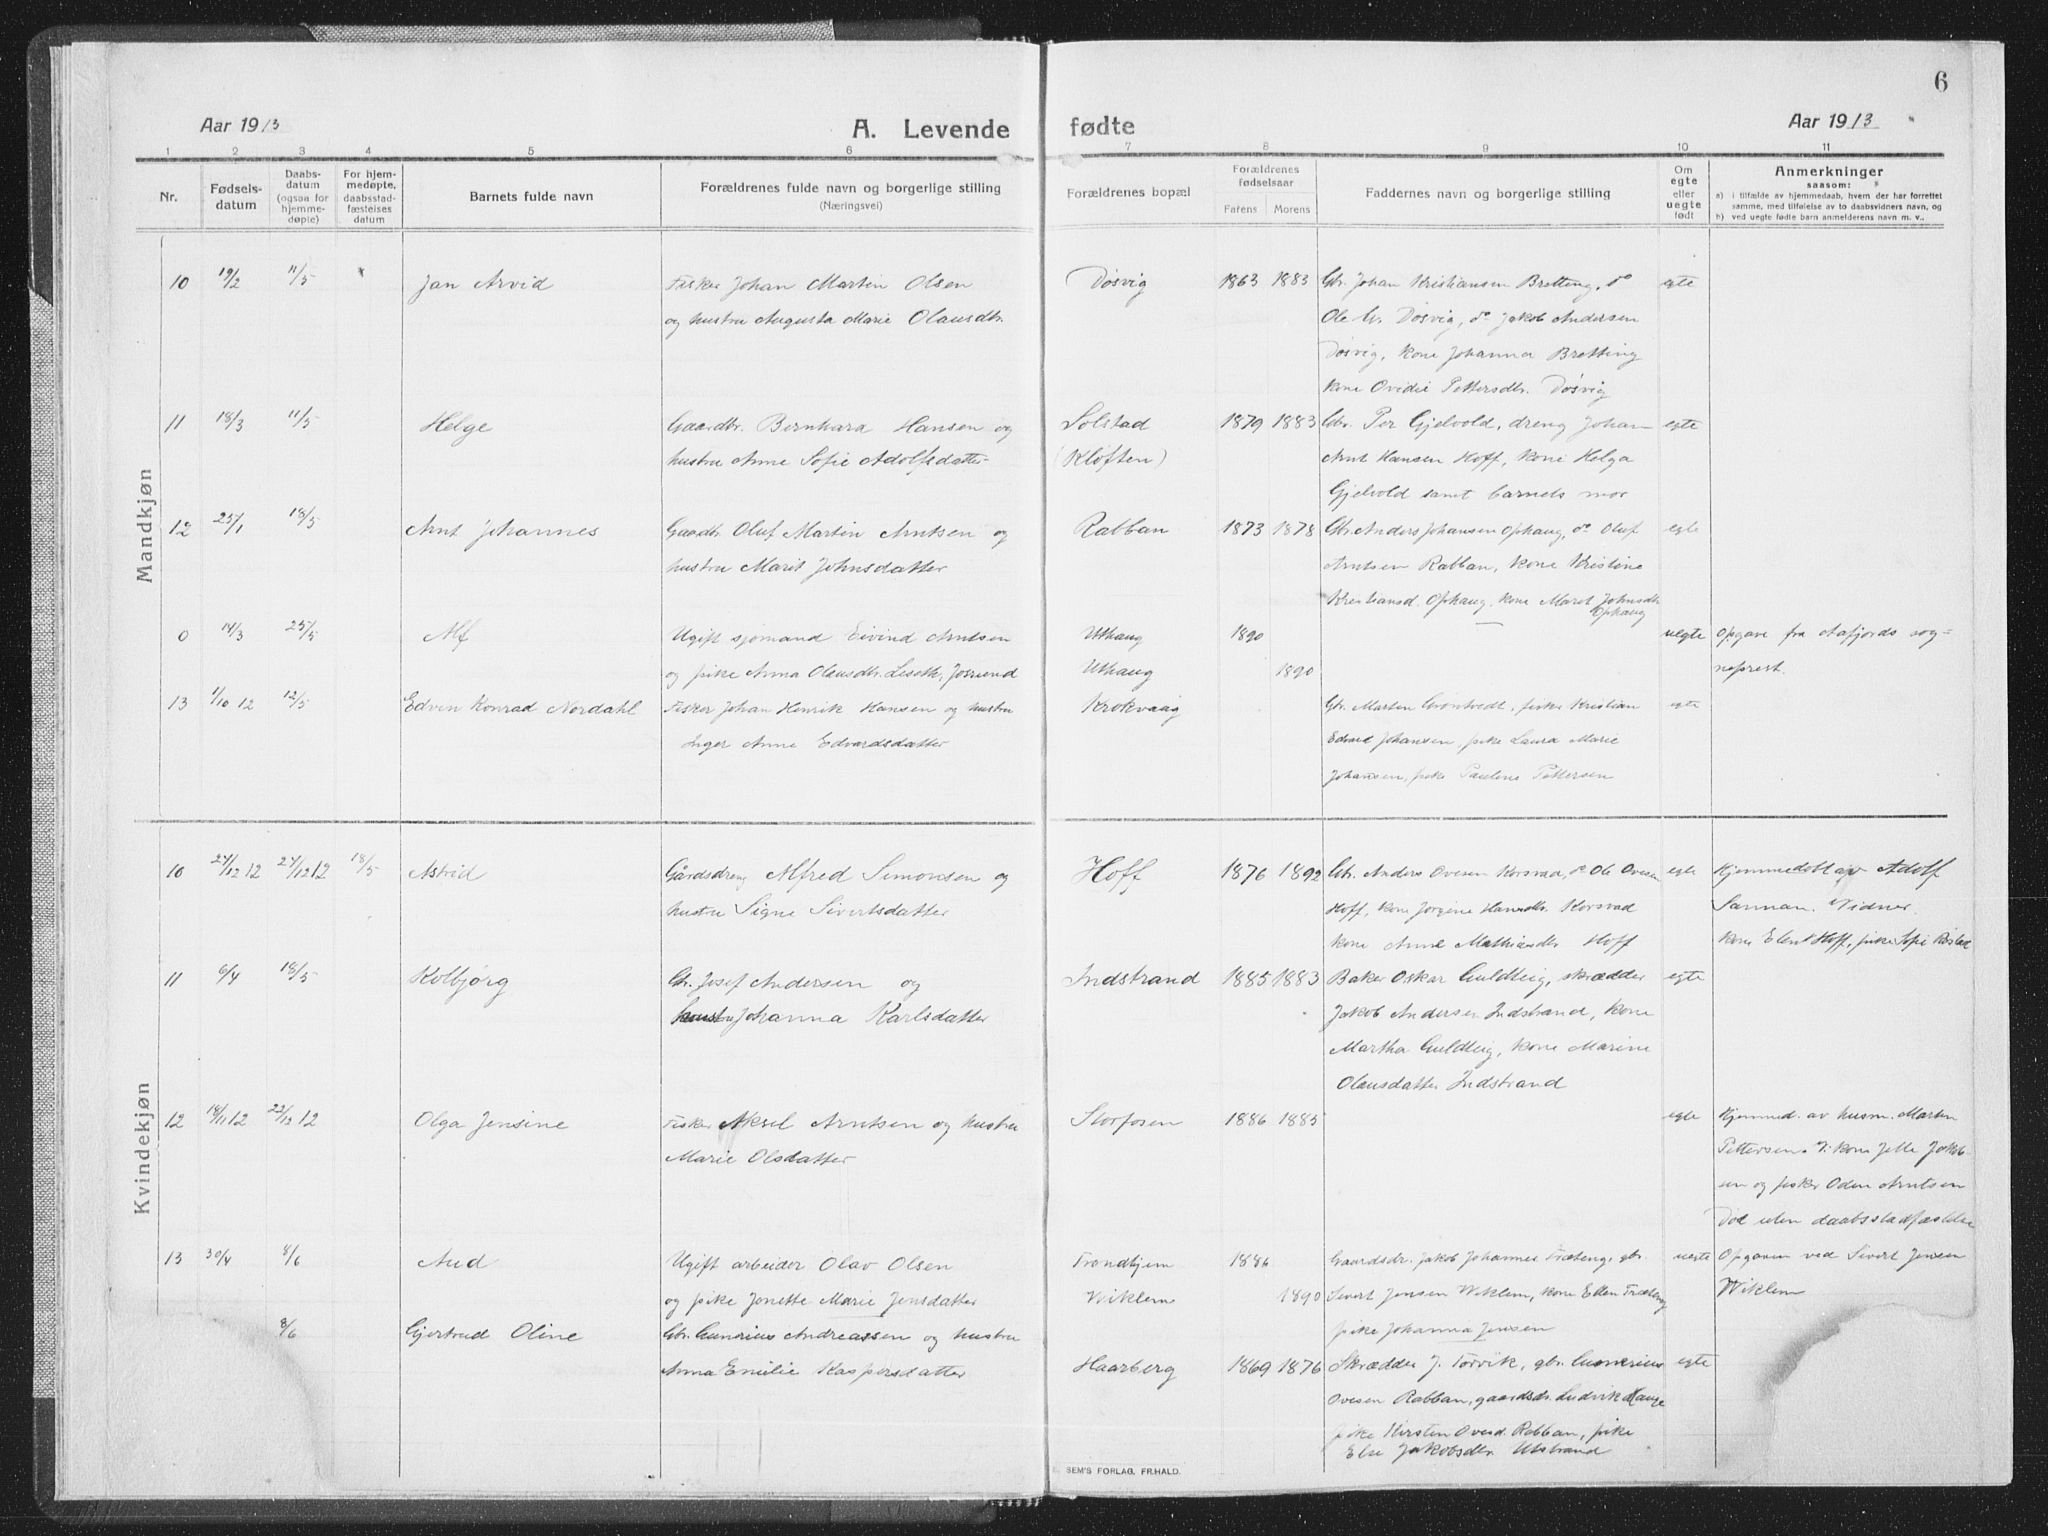 6
Aar 1913
A. Levende fødte
Aar 1913
1 2 3 4 5 6 7 8 9 10 11
Nr.
Fødsels-
datum
Daabs-
datum
(ogsaa for
hjemme-
døpte)
For hjem-
medøpte,
daabsstad-
fæstelses
datum
Barnets fulde navn
Forældrenes fulde navn og borgerlige stilling
(Næringsvei)
Forældrenes bopæl
Forældrenes
fødselsaar
Farens Morens
Faddernes navn og borgerlige stilling
Om
egte
eller
uegte
født
Anmerkninger
saasom:
a) i tilfælde av hjemmedaab, hvem der har forrettet
samme, med tilføielse av to daabsvidners navn, og
b) ved uegte fødte barn anmelderens navn m. v..
Mandkjøn
10 19/2 11/5 Jan Arvid
Fisker Johan Martin Olsen
og hustru Augusta Marie Olausdtr.
Døsvig 1863 1883
Gbr. Johan Kristiansen Bretting, do
Ole Døsvig, do Jakob Andersen
Døsvig, kone Johanna Bretting
kone Ovidie Pettersdtr. Døsvig
egte
11 18/3 11/5 Helge
Gaardbr. Bernhard Hansen og
hustru Anne Sofie Adolfsdatter
Solstad
(Kløften)
1879 1883
Gbr. Per Gjelvold, dreng Johan
Arnt Hansen Hoff, kone Helga
Gjelvold samt barnets mor
egte
12 25/1 18/5 Arnt Johannes
Gaardbr. Oluf Martin Arntsen og
hustru Marit Johnsdatter
Rabban 1873 1878
Gbr. Anders Johansen Ophaug, do Oluf
Arntsen Rabban, kone Kristine
Kristiansd. Ophaug, kone Maret Johnsdtr.
Ophaug
egte
0 14/3 25/5 Alf
Ugift sjømand Eivind Arntsen
og pike Anna Olausdtr. Liseth, Jøssund
Uthaug 1890
Uthaug 1890
uegte
Opgave fra Aafjords sog-
neprest.
13 1/10 12 12/5 Edvin Konrad Nordahl
Fisker Johan Henrik Hansen og hustru
Inger Anne Edvardsdatter
Krokvaag
Gbr. Martin Grøntvedt, fisker Kristian
Edvard Johansen, pike Laura Marie
Johansen, pike Pauline Pettersen
egte
Kvindekjøn
10 27/12 12 27/12 12 18/5 Astrid
Gårdsdreng Alfred Simonsen og
hustru Signe Sivertsdatter
Hoff 1876 1892
Gbr. Anders Ovesen Korsvad, do Ole Ovesen
Hoff, kone Jørgine Hansdtr. Korsvad
kone Anne Mathiasdtr. Hoff
egte
Hjemmedøbt av Adolf
Sannan. Vidner
kone Elen Hoff, pike Sofie
11 6/4 18/5 Kolbjørg
Gbr. Josef Andersen og
hustru Johanna Karlsdatter
Indstrand 1885 1883
Baker Oskar Guldteig, skrædder
Jakob Andersen Indstrand, kone
Martha Guldteig, kone Marine
Olausdatter Indstrand
egte
12 18/11 12 22/12 12 Olga Jensine
Fisker Aksel Arntsen og hustru
Marie Olsdatter
Storfosen 1886 1885
egte
Hjemmed. av husm. Martin
Pettersen. V: kone Jelle Jakob-
sen og fisker Oden Arntsen
Død uten daabsstadfæstelse
13 30/4 8/6 Aud
Ugift arbeider Olav Olsen
og pike Jonette Marie Jensdatter
Trondhjem 1886
Wiklem 1890
Gaardsdr. Jakob Johannes Træteng, gbr.
Sivert Jensen Wiklem, kone Ellen Træteng
pike Johanna Jensen
uegte
Opgaven ved Sivert Jensen
Wiklem
8/6 Gjertrud Oline
Gbr. Gunerius Andreassen og hustru
Anna Emilie Kaspersdatter
Haarberg 1869 1876
Skrædder J. Torvik, gbr. Gunerius
Ovesen Rabban, gaardsdr. Ludvik Hauge
pike Kirsten Ovesd. Rabban, pike
Else Jakobsdtr. Utstrand
egte
SEM'S FORLAG, FR.HALD.